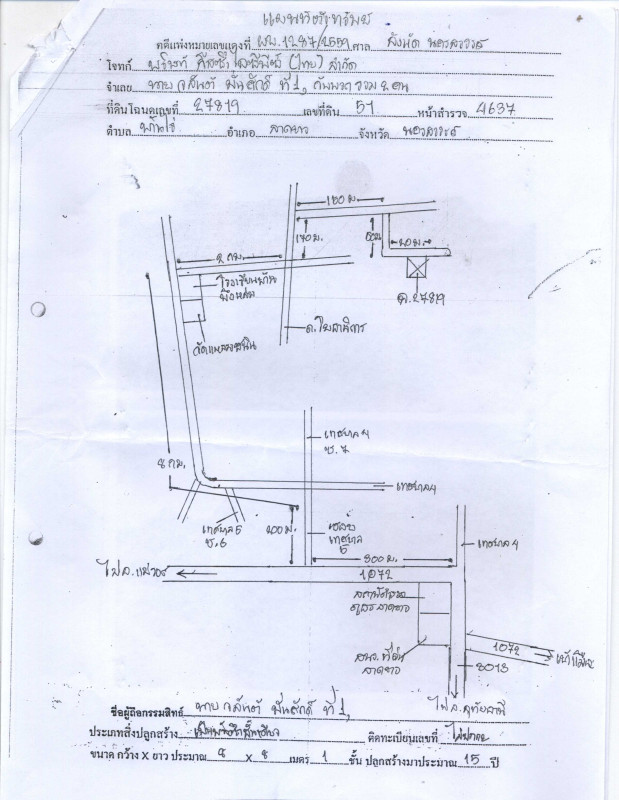 แผนที่ตั้งทรัพย์
คดีแพ่งหมายเลขแดงที่ ผบ.1287/2559 ศาล จังหวัด นครสวรรค์
โจทก์ บริษัท ลีสซิ่ง (ไทย) จำกัด
จำเลย นาย มั่นศักดิ์ ที่ 1, กับพวกรวม 2 คน
ที่ดินโฉนดเลขที่ 27819 เลขที่ดิน 51 หน้าสำรวจ 4637
ตำบล อำเภอ ลาดยาว จังหวัด นครสวรรค์
150 ม.
170 ม.
50 ม.
20 ม.
2 กม.
โรงเรียนบ้าน
ฉ.27819
วัด
8 กม.
เทศบาล 4
ซ.7
เทศบาล 4
เทศบาล 5
ซ.6
200 ม.
เทศบาล
5
300 ม.
เทศบาล 4
ไป อ.แม่วงก์
1072
สถานีตำรวจ
ภูธร ลาดยาว
สนง. ที่ดิน
ลาดยาว
1072
เข้าเมือง
3013
ไป จ.อุทัยธานี
ชื่อผู้ถือกรรมสิทธิ์ นาย มั่นศักดิ์ ที่ 1,
ประเภทสิ่งปลูกสร้าง ติดทะเบียนเลขที่
ขนาด กว้าง X ยาว ประมาณ X 8 เมตร 1 ชั้น ปลูกสร้างมาประมาณ 15 ปี